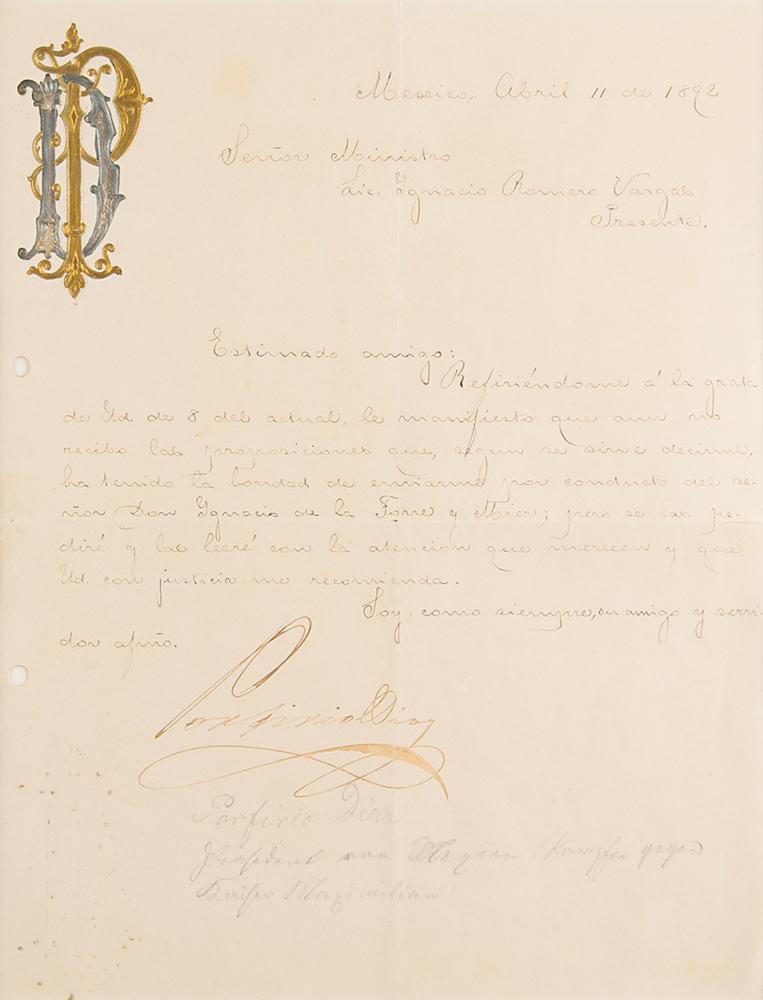 PD
Mexico, Abril 11 de 1892
Señor Ministro
Lic. Ygnacio Romero Vargas
Presente.
Estimado amigo:
Refiriéndome á la grata
de Ud. de 8 del actual, le manifiesto que aun no
recibo las proposiciones que, segun se sirve decirme,
ha tenido la bondad de enviarme por conducto del se-
ñor Don Ygnacio de la Torre y Mier; pero se las pe-
diré y las leeré con la atencion que merecen y que
Ud. con justicia me recomienda.
Soy, como siempre, su amigo y servi-
dor afmo.
Porfirio Diaz
Porfirio Diaz
Präsident von Mexico (Kämpfer gegen
Kaiser Maximilian)